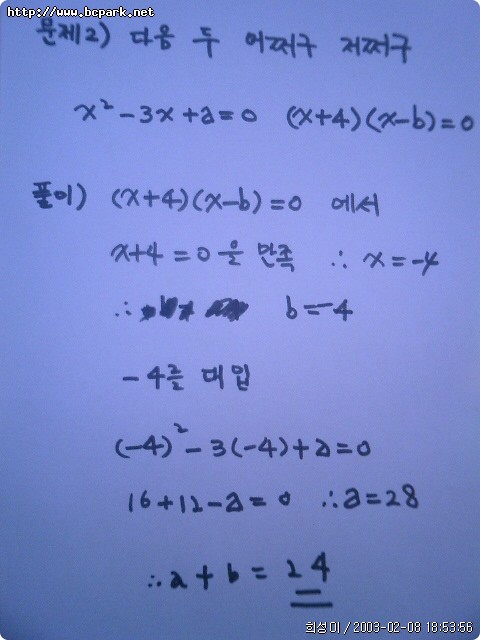 http://www.bcpark.net
문제2) 다음 두 어쩌구 저쩌구
x² - 3x + a = 0 (x+4)(x-b) = 0
풀이) (x+4)(x-b) = 0 에서
x+4 = 0 을 만족 ∴ x = -4
∴ b = -4
-4를 대입
(-4)² - 3(-4) + a = 0
16 + 12 - a = 0 ∴ a = 28
∴ a + b = 24
희성이 / 2003-02-08 18:53:56